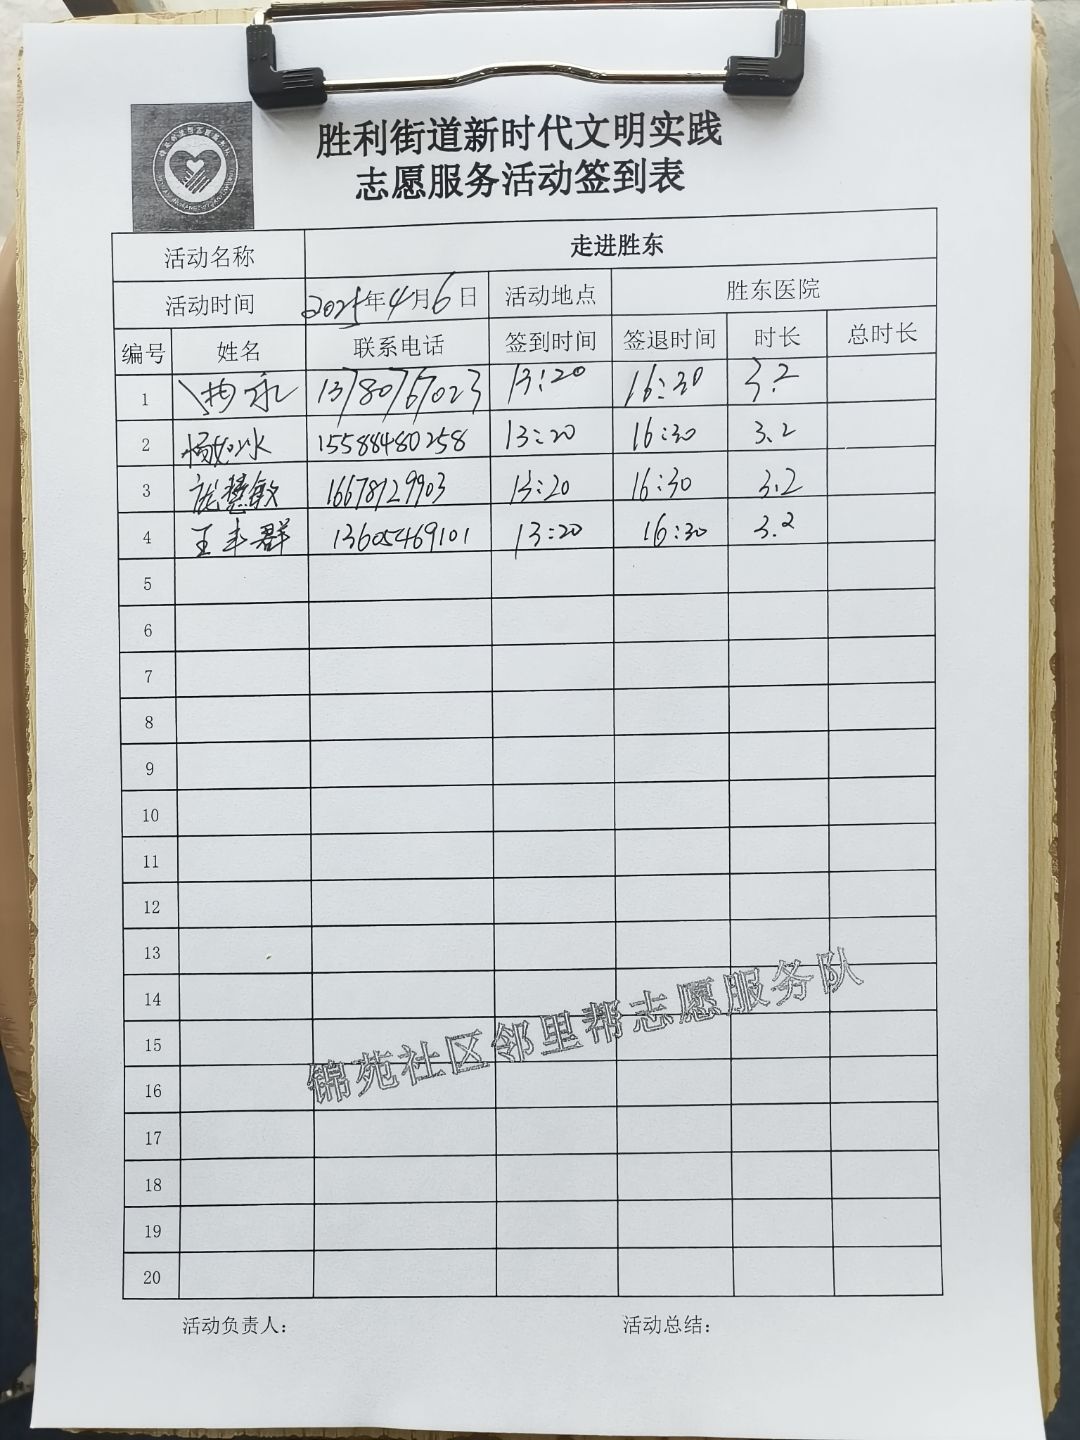 胜利街道新时代文明实践
志愿服务活动签到表
活动名称 走进胜东
活动时间 2025年4月6日 活动地点 胜东医院
编号 姓名 联系电话 签到时间 签退时间 时长 总时长
1 13780767023 13:20 16:30 3.2
2 杨如冰 15588480258 13:20 16:30 3.2
3 慧敏 16678129903 13:20 16:30 3.2
4 王丰群 13605469101 13:20 16:30 3.2
5
6
7
8
9
10
11
12
13
14
15
16
17
18
19
20
锦苑社区邻里帮志愿服务队
活动负责人: 活动总结: